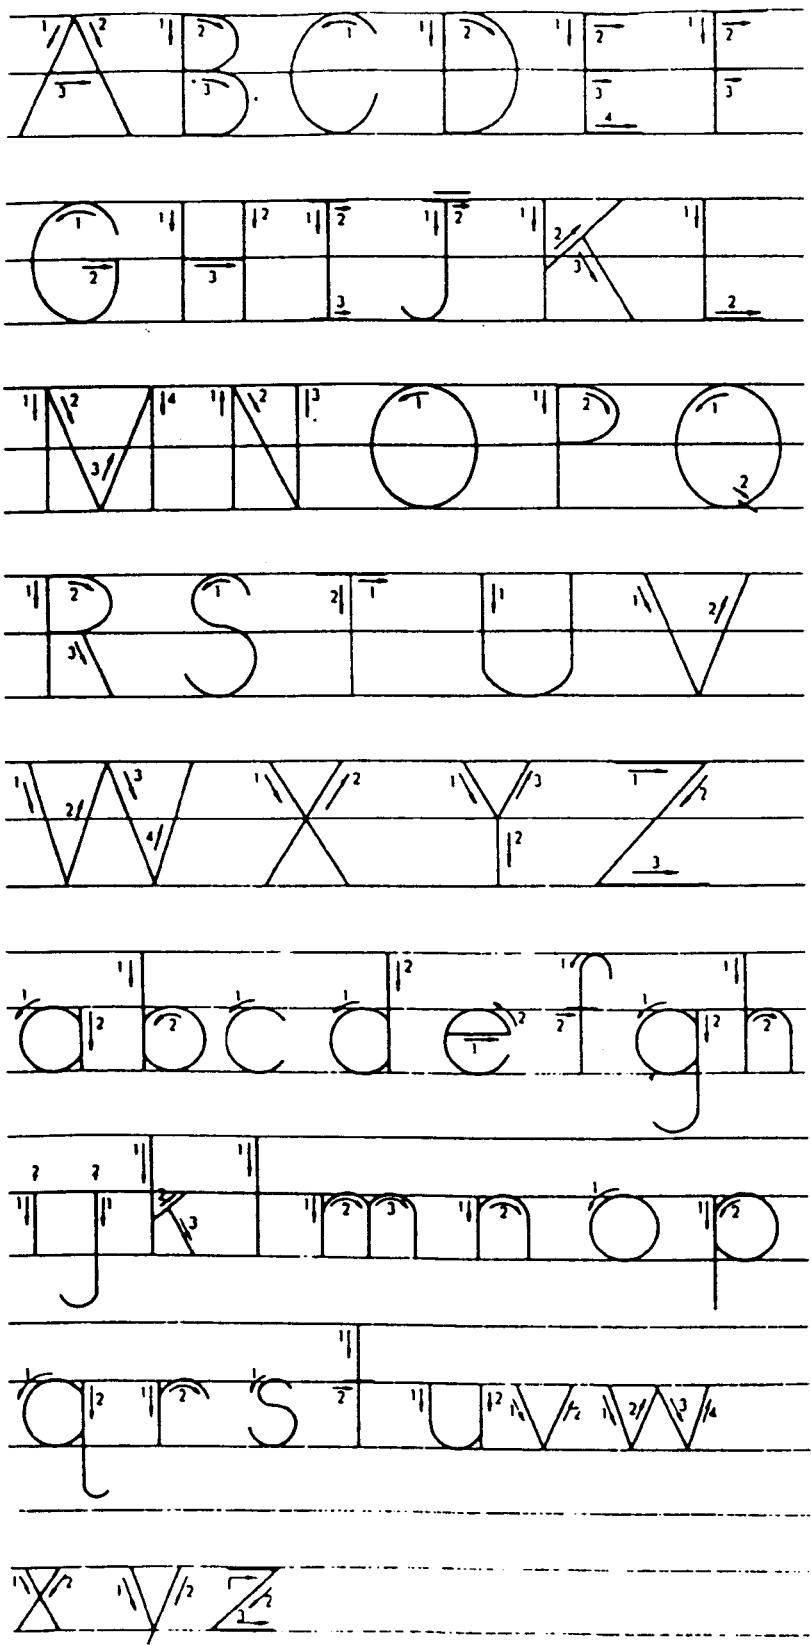 A B C D E F
G H I J K L
M N O P Q
R S T U V
W X Y Z
a b c d e f g h
i j k l m n o p
q r s t u v w
x y z